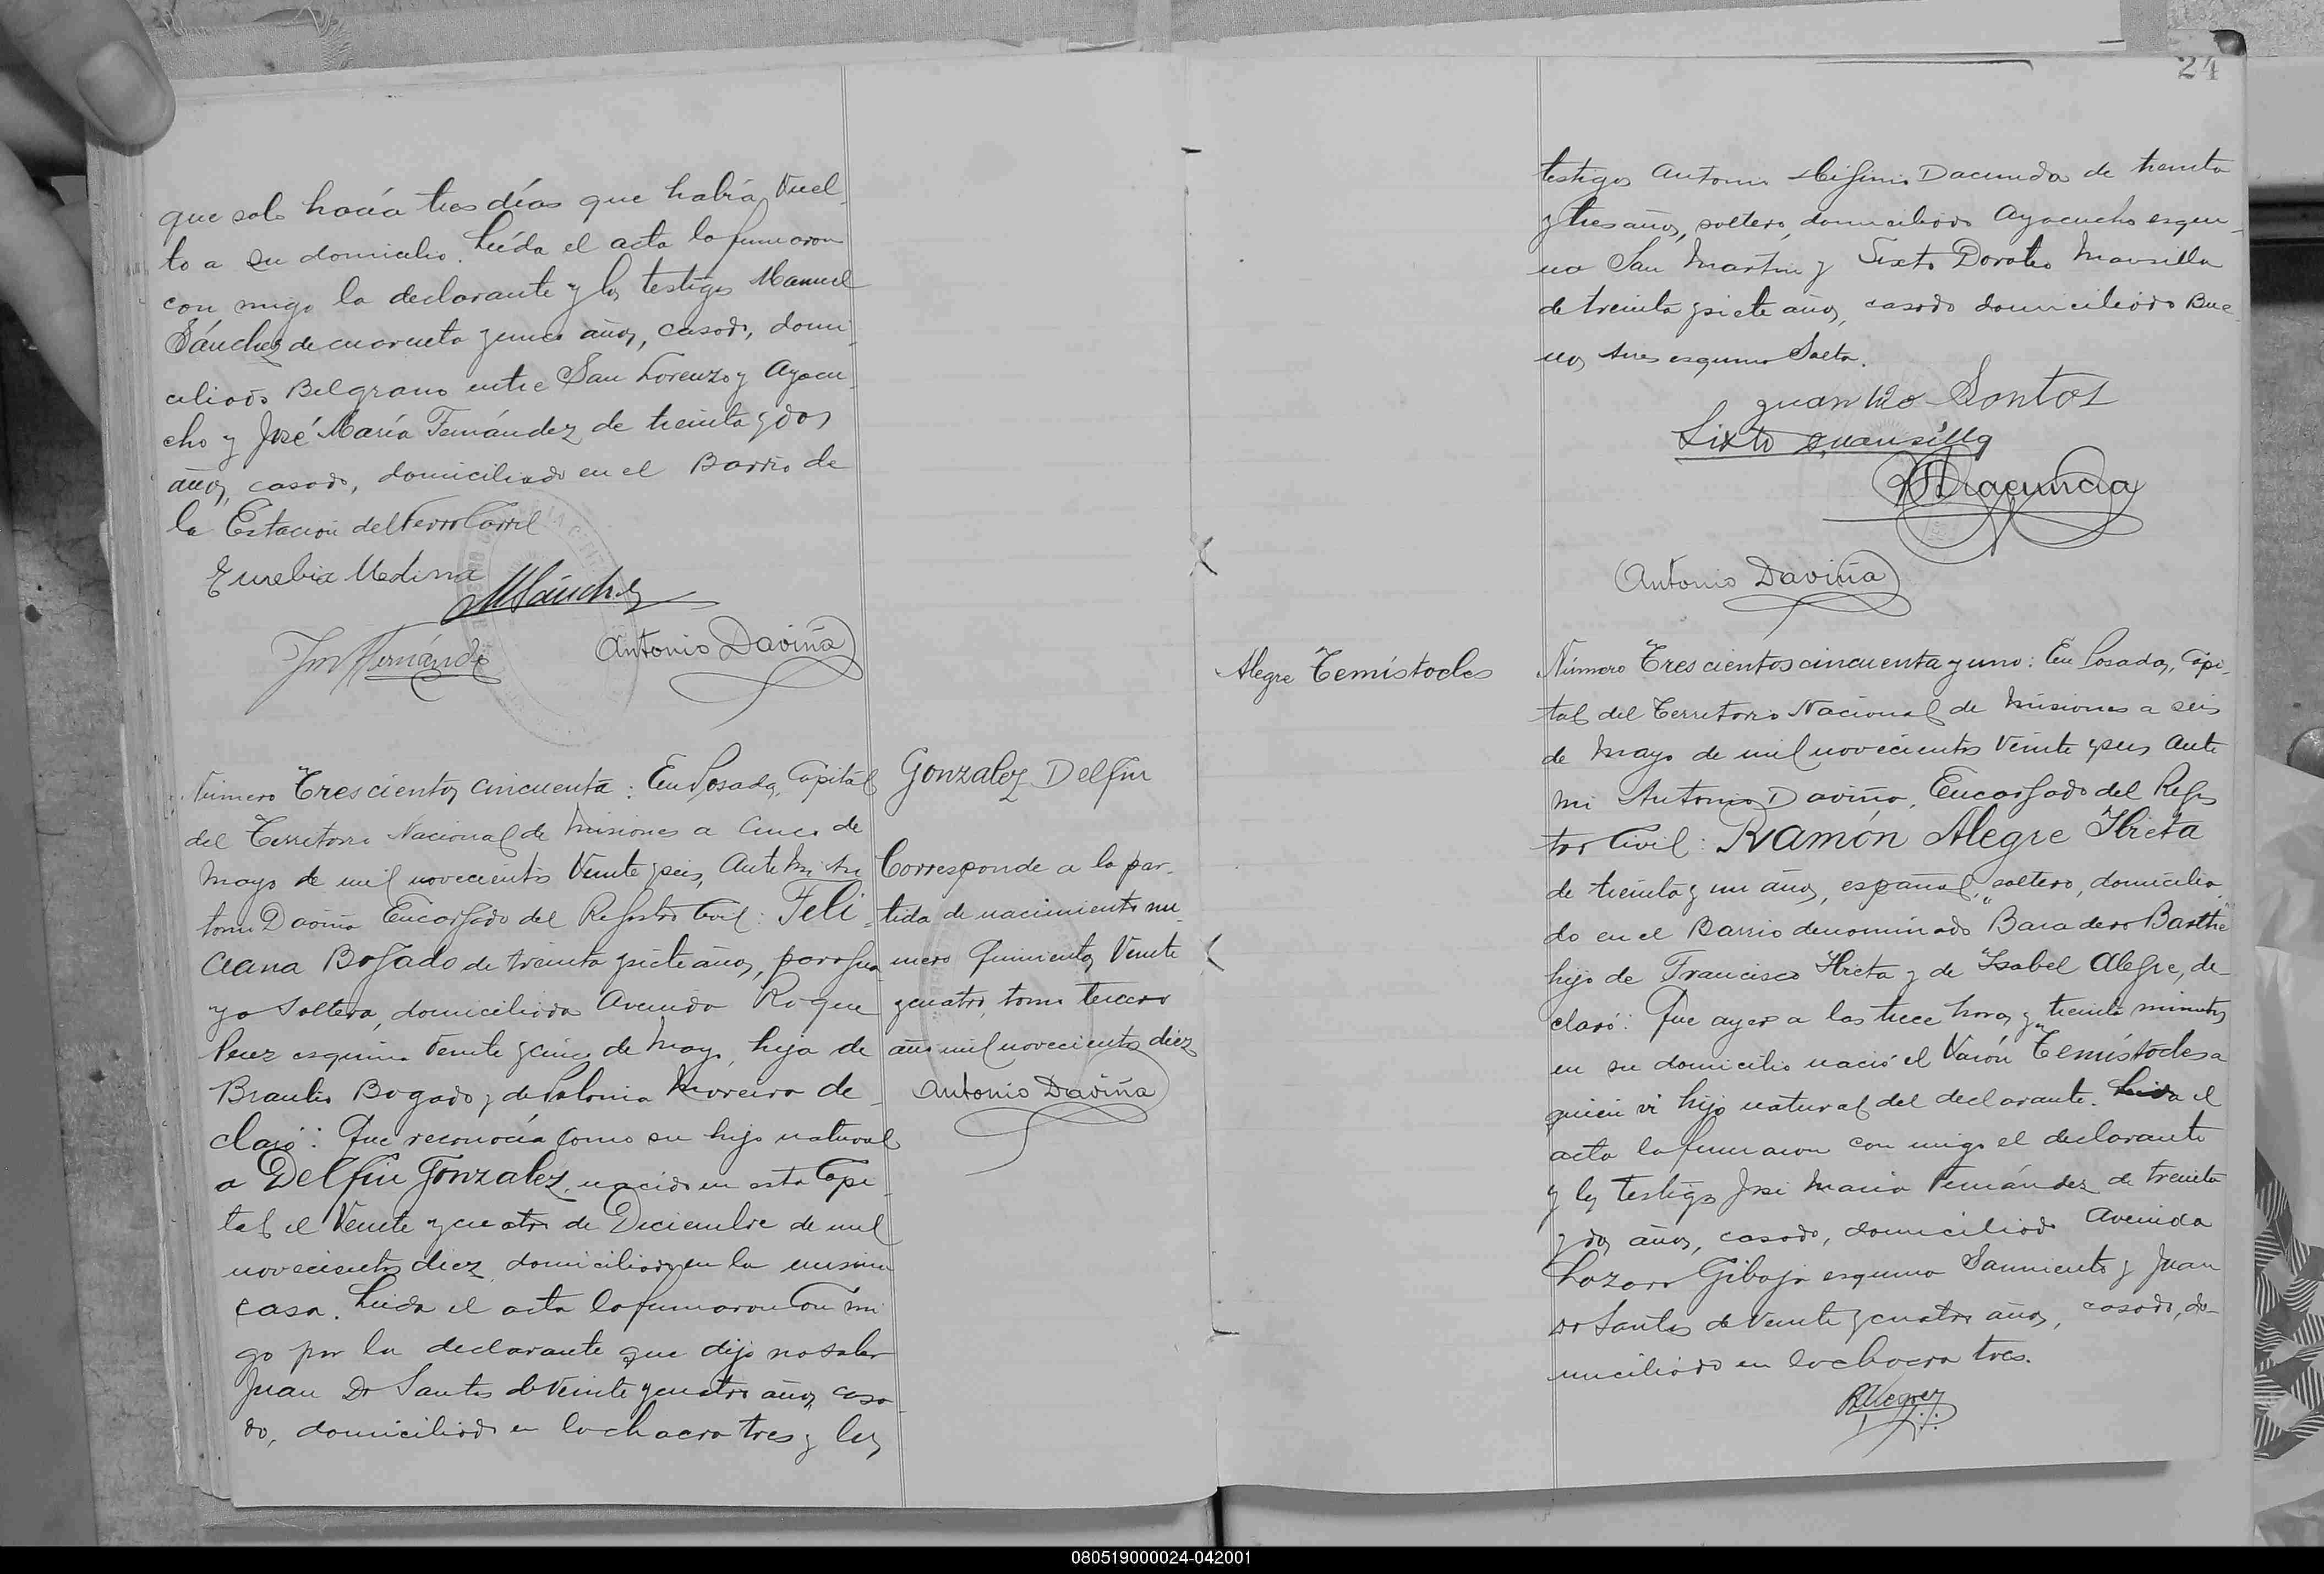 que solo hacía tres días que había vuel-
to a su domicilio. Leída el acta la firmaron
con migo la declarante y los testigos Manuel
Sánchez de cuarenta y cinco años, casado, domi-
ciliado Belgrano entre San Lorenzo y Ayacu-
cho y José María Fernández de treinta y dos
años, casado, domiciliado en el Barrio de
la Estación del Ferro Carril
Eusebia Medina
MSánchez
Fernández
Antonio Daviña
Número Trescientos cincuenta: En Posadas, Capital
del Territorio Nacional de Misiones a cinco de
Mayo de mil novecientos veinte y seis, Ante mi An
tonio Daviña Encargado del Registro Civil: Feli-
ciana Bogado de treinta y siete años, paragua
ya soltera, domiciliada Avenida Roque
Perez esquina Veinte y cinco de Mayo, hija de
Braulio Bogado y de Polonia Moreira de-
claró: Que reconocía como su hijo natural
a Delfin Gonzalez, nacido en esta Capi-
tal el Veinte y cuatro de Diciembre de mil
novecientos diez, domiciliado en la misma
casa. Leida el acta la firmaron con mi
go por la declarante que dijo no saber
Juan Do Santos de Veinte y cuatro años, casa-
do, domiciliado en la chacra tres y los
Gonzalez Delfin
Corresponde a la par-
tida de nacimiento nu-
mero Quinientos Veinte
y cuatro, tomo tercero
año mil novecientos diez
Antonio Daviña
24
testigos Antonio Dacunda de treinta
y tres años, soltero, domiciliado Ayacucho esqui-
na San Martin y Sixto Doroteo Mansilla
de treinta y siete años, casado domiciliado Bue-
nos Aires esquina Salta.
Juan Do Santos
Sixto Mansilla
Dacunda
Antonio Daviña
Alegre Temístocles
Número Trescientos cincuenta y uno: En Posadas, Capi-
tal del Territorio Nacional de Misiones a seis
de Mayo de mil novecientos Veinte y seis Ante
mi Antonio Daviña, Encargado del Regis
tro Civil: Ramón Alegre
de treinta y un años, español, soltero, domicilia
do en el Barrio denominado "Baradero Barthe"
hijo de Francisco y de Ysabel Alegre, de-
claró: Que ayer a las trece horas y treinta minutos
en su domicilio nació el Varón Temístocles a
quien vi hijo natural del declarante. Leida el
acta la firmaron con migo el declarante
y los testigos José Maria Fernández de treinta
y dos años, casado, domiciliado Avenida
Lazaro Gibaja esquina Sarmiento y Juan
Do Santos de Veinte y cuatro años, casado, do-
miciliado en la chacra tres.
080519000024-042001